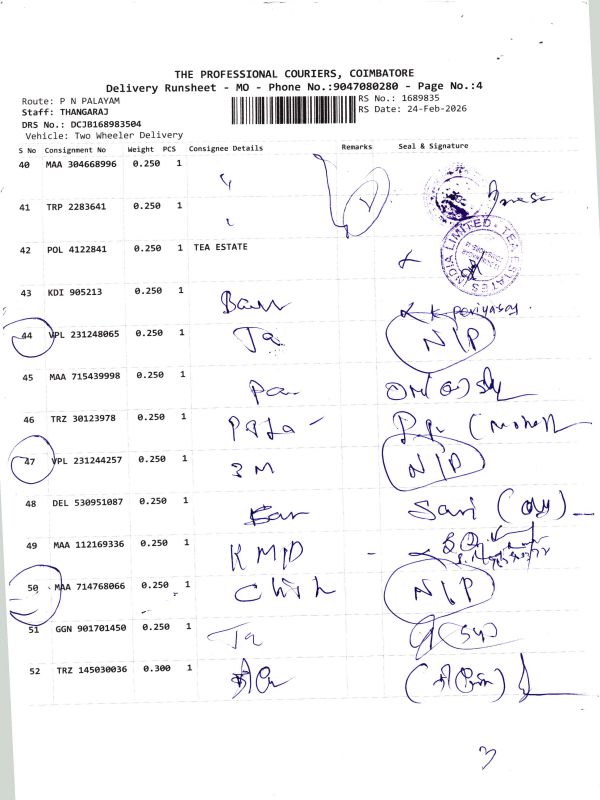 THE PROFESSIONAL COURIERS, COIMBATORE
Delivery Runsheet - MO - Phone No.:9047080280 - Page No.:4
Route: P N PALAYAM
RS No.: 1689835
Staff: THANGARAJ
RS Date: 24-Feb-2026
DRS No.: DCJB168983504
Vehicle: Two Wheeler Delivery
S No Consignment No Weight PCS Consignee Details Remarks Seal & Signature
40 MAA 304668996 0.250 1
41 TRP 2283641 0.250 1
42 POL 4122841 0.250 1 TEA ESTATE
TEA ESTATES INDIA LIMITED
43 KDI 905213 0.250 1 K Periyasay
44 VPL 231248065 0.250 1 Ta N/P
45 MAA 715439998 0.250 1 Pa
46 TRZ 30123978 0.250 1
47 VPL 231244257 0.250 1 3 M N/P
48 DEL 530951087 0.250 1 Sari
49 MAA 112169336 0.250 1 KMD
50 MAA 714768066 0.250 1 N/P
51 GGN 901701450 0.250 1 Ta
52 TRZ 145030036 0.300 1
3